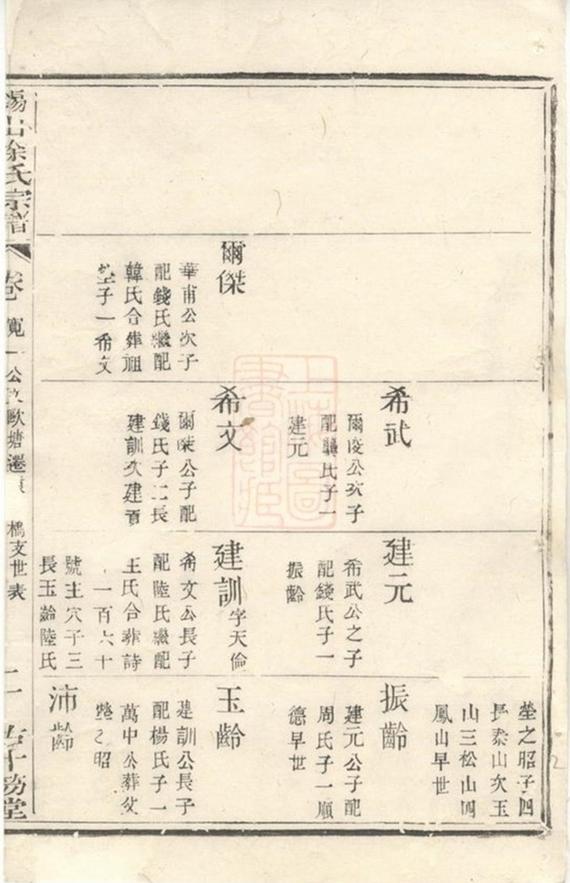 希武
爾俊公次子
配龔氏子一
建元
建元
希武公之子
配錢氏子一
振齡
塋之昭子四
長泰山次玉
山三松山四
鳳山早世
振齡
建元公子配
周氏子一順
德早世
爾傑
華甫公次子
配錢氏繼配
韓氏合葬祖
塋子一希文
希文
爾傑公子配
錢氏子二長
建訓次建
建訓字天倫
希文公長子
配陸氏繼配
王氏合葬詩
一百六十
號主穴子三
長玉齡陸氏
玉齡
建訓公長子
配楊氏子一
萬中公葬父
塋之昭
沛齡
錫山徐氏宗譜
卷 寬一公 歐塘遷 橋支世表
二